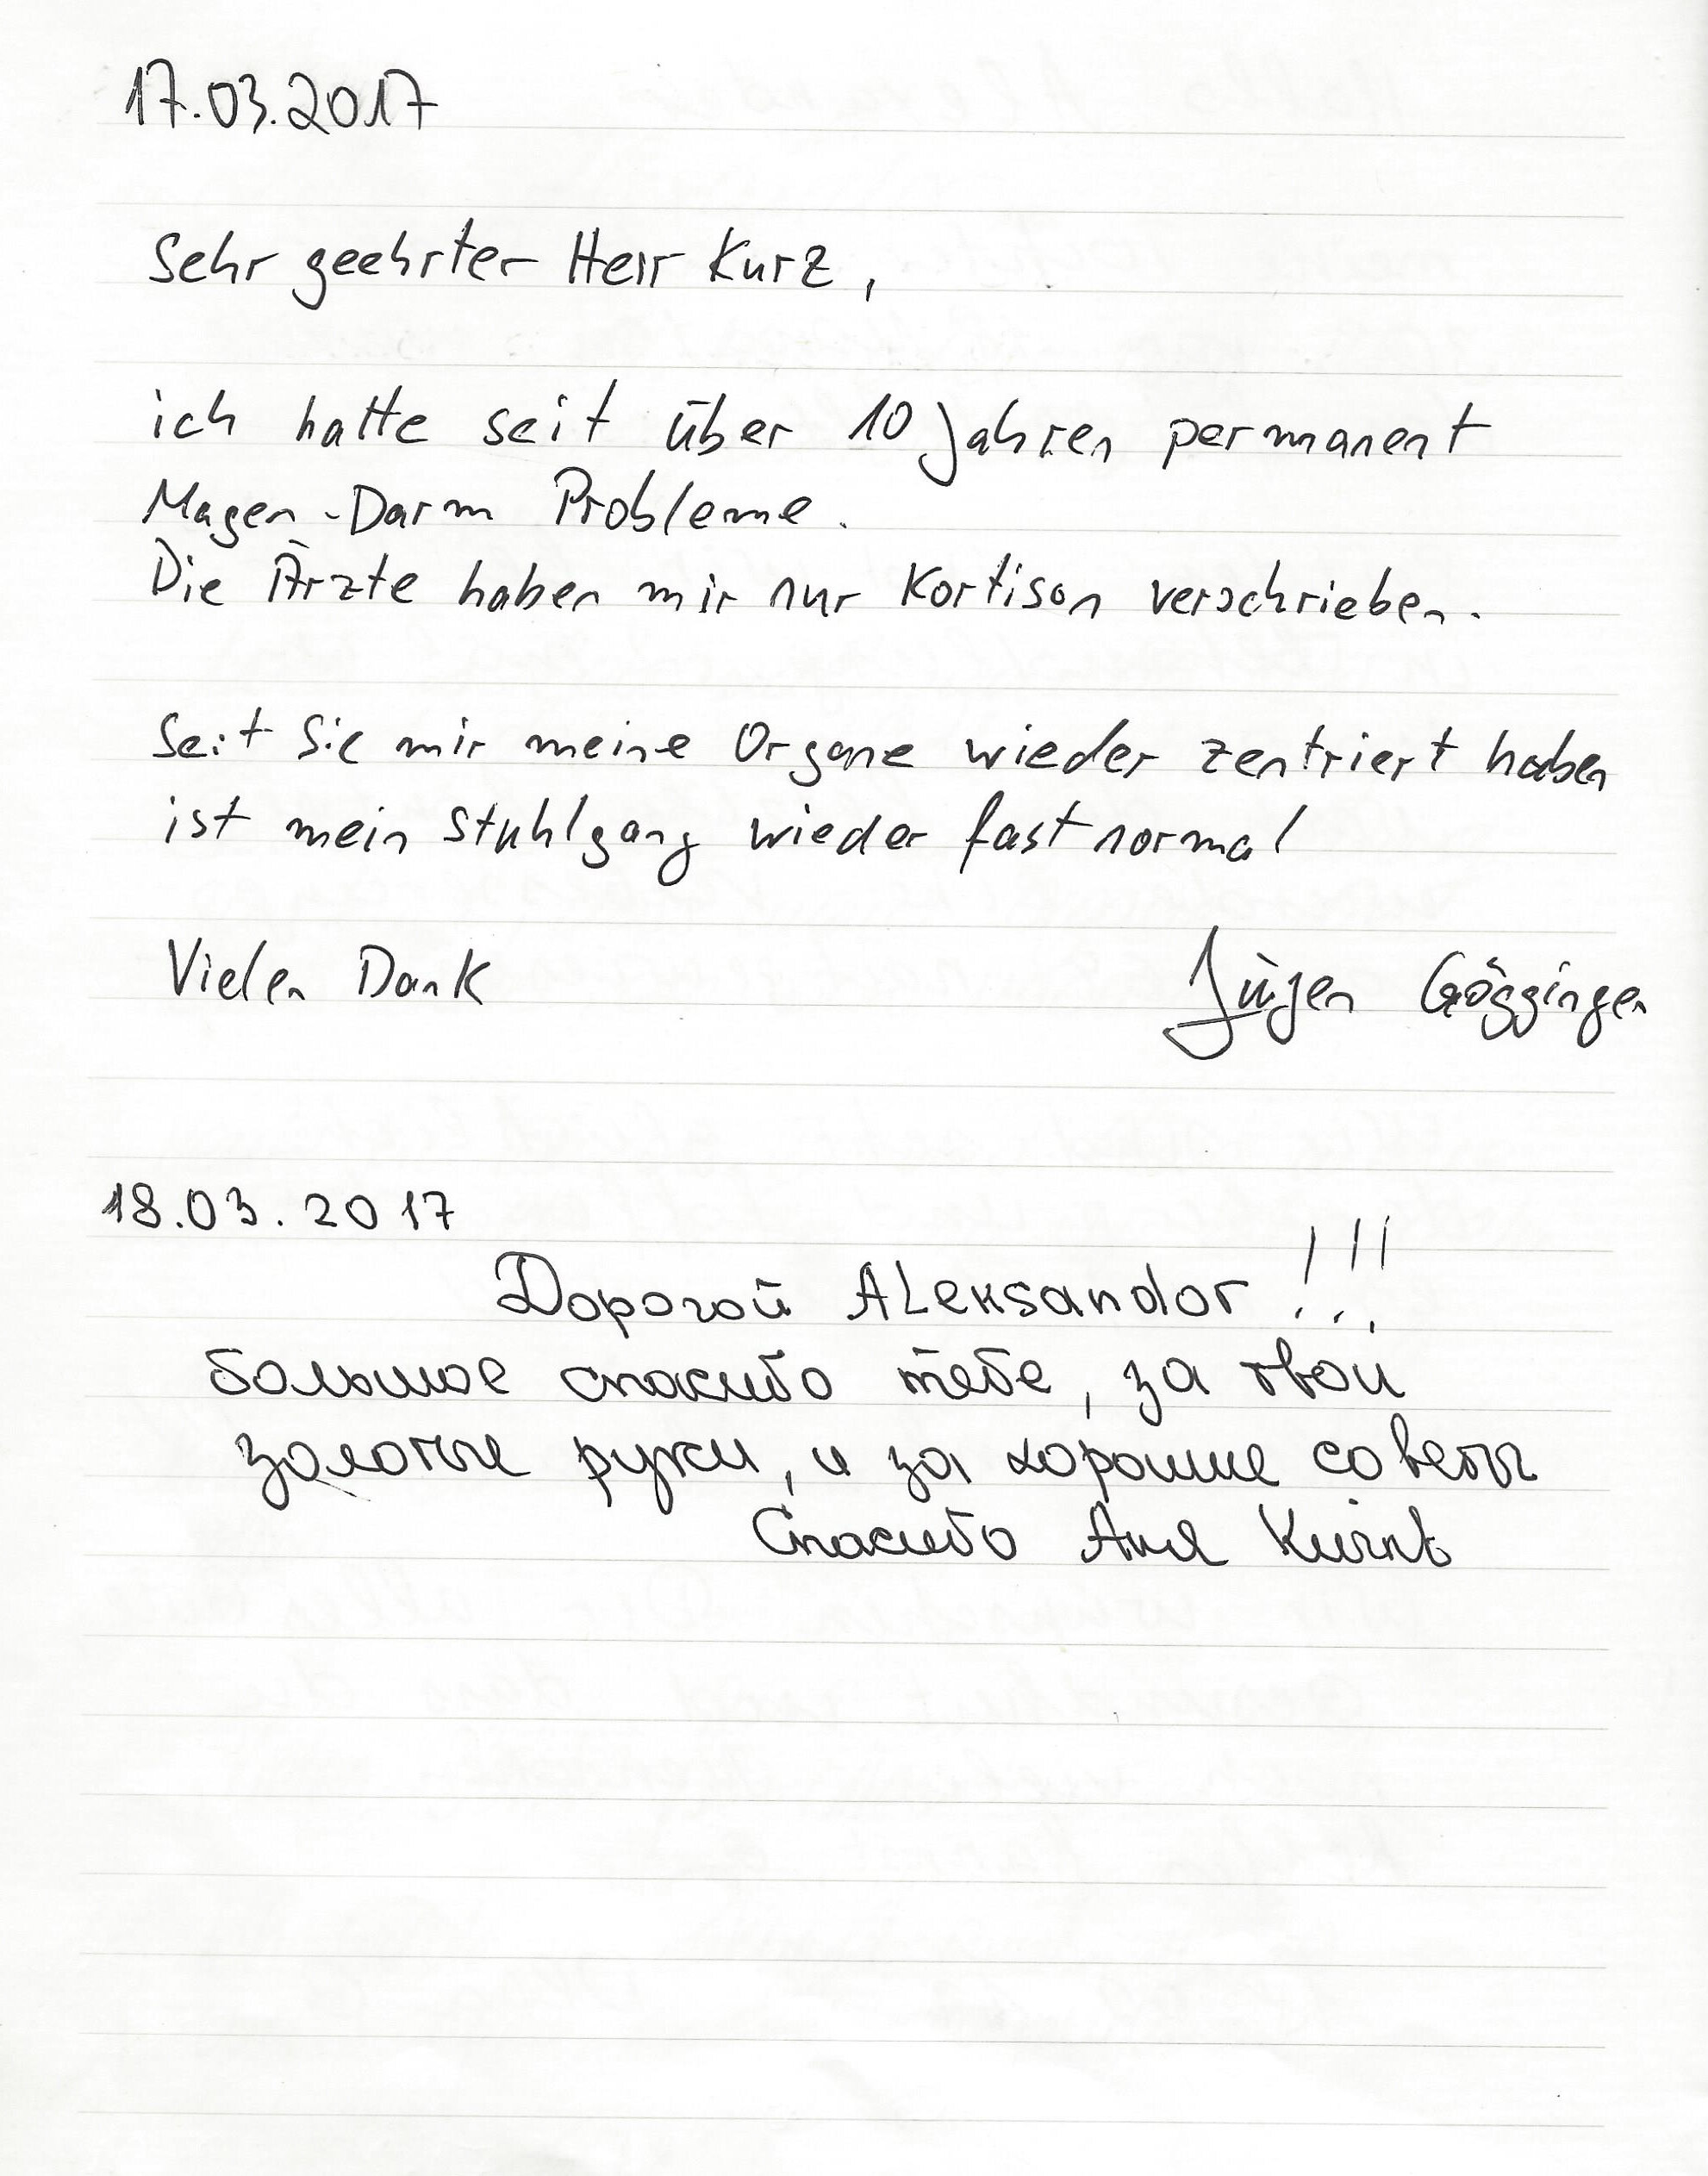 17.03.2017
Sehr geehrter Herr Kurz,
ich hatte seit über 10 Jahren permanent
Magen-Darm Probleme.
Die Ärzte haben mir nur Kortison verschrieben.
Seit Sie mir meine Organe wieder zentriert haben
ist mein Stuhlgang wieder fast normal
Vielen Dank Jürgen Göggingen
18.03.2017
Дорогой ALeksandor!!!
большое спасибо тебе, за твои
золотые руки, и за хорошие советы
Спасибо Аня